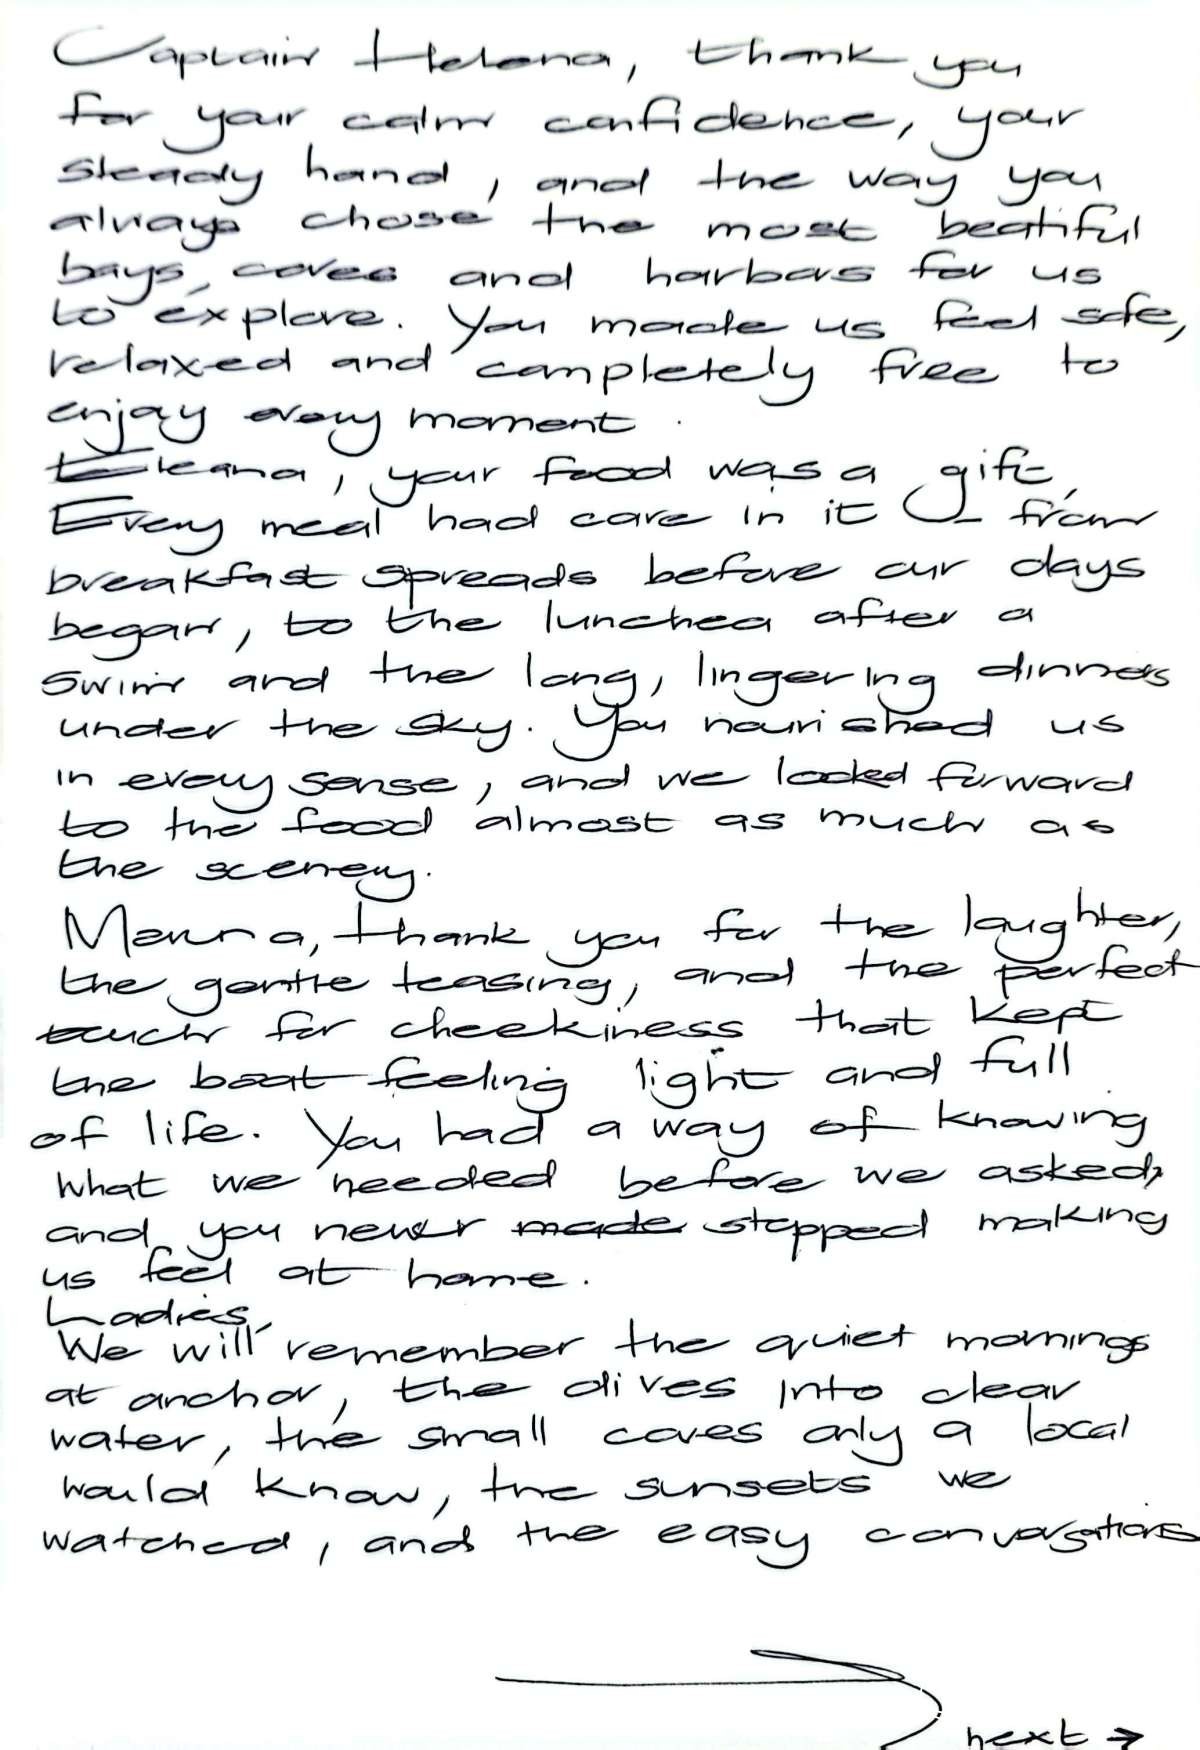 Captain Helena, thank you
for your calm confidence, your
steady hand, and the way you
always chose the most beatiful
bays, coves and harbors for us
to explore. You made us feel safe,
relaxed and completely free to
enjoy every moment.
Eleana, your food was a gift,
Every meal had care in it - from
breakfast spreads before our days
began, to the lunches after a
swim and the long, lingering dinners
under the sky. You nourished us
in every sense, and we looked forward
to the food almost as much as
the scenery.
thank you for the laughter,
the gentle teasing, and the perfect
touch for cheekiness that kept
the boat feeling light and full
of life. You had a way of knowing
what we needed before we asked,
and you never made stopped making
us feel at home.
Ladies,
We will remember the quiet mornings
at anchor, the dives into clear
water, the small coves only a local
would know, the sunsets we
watched, and the easy conversations
next →